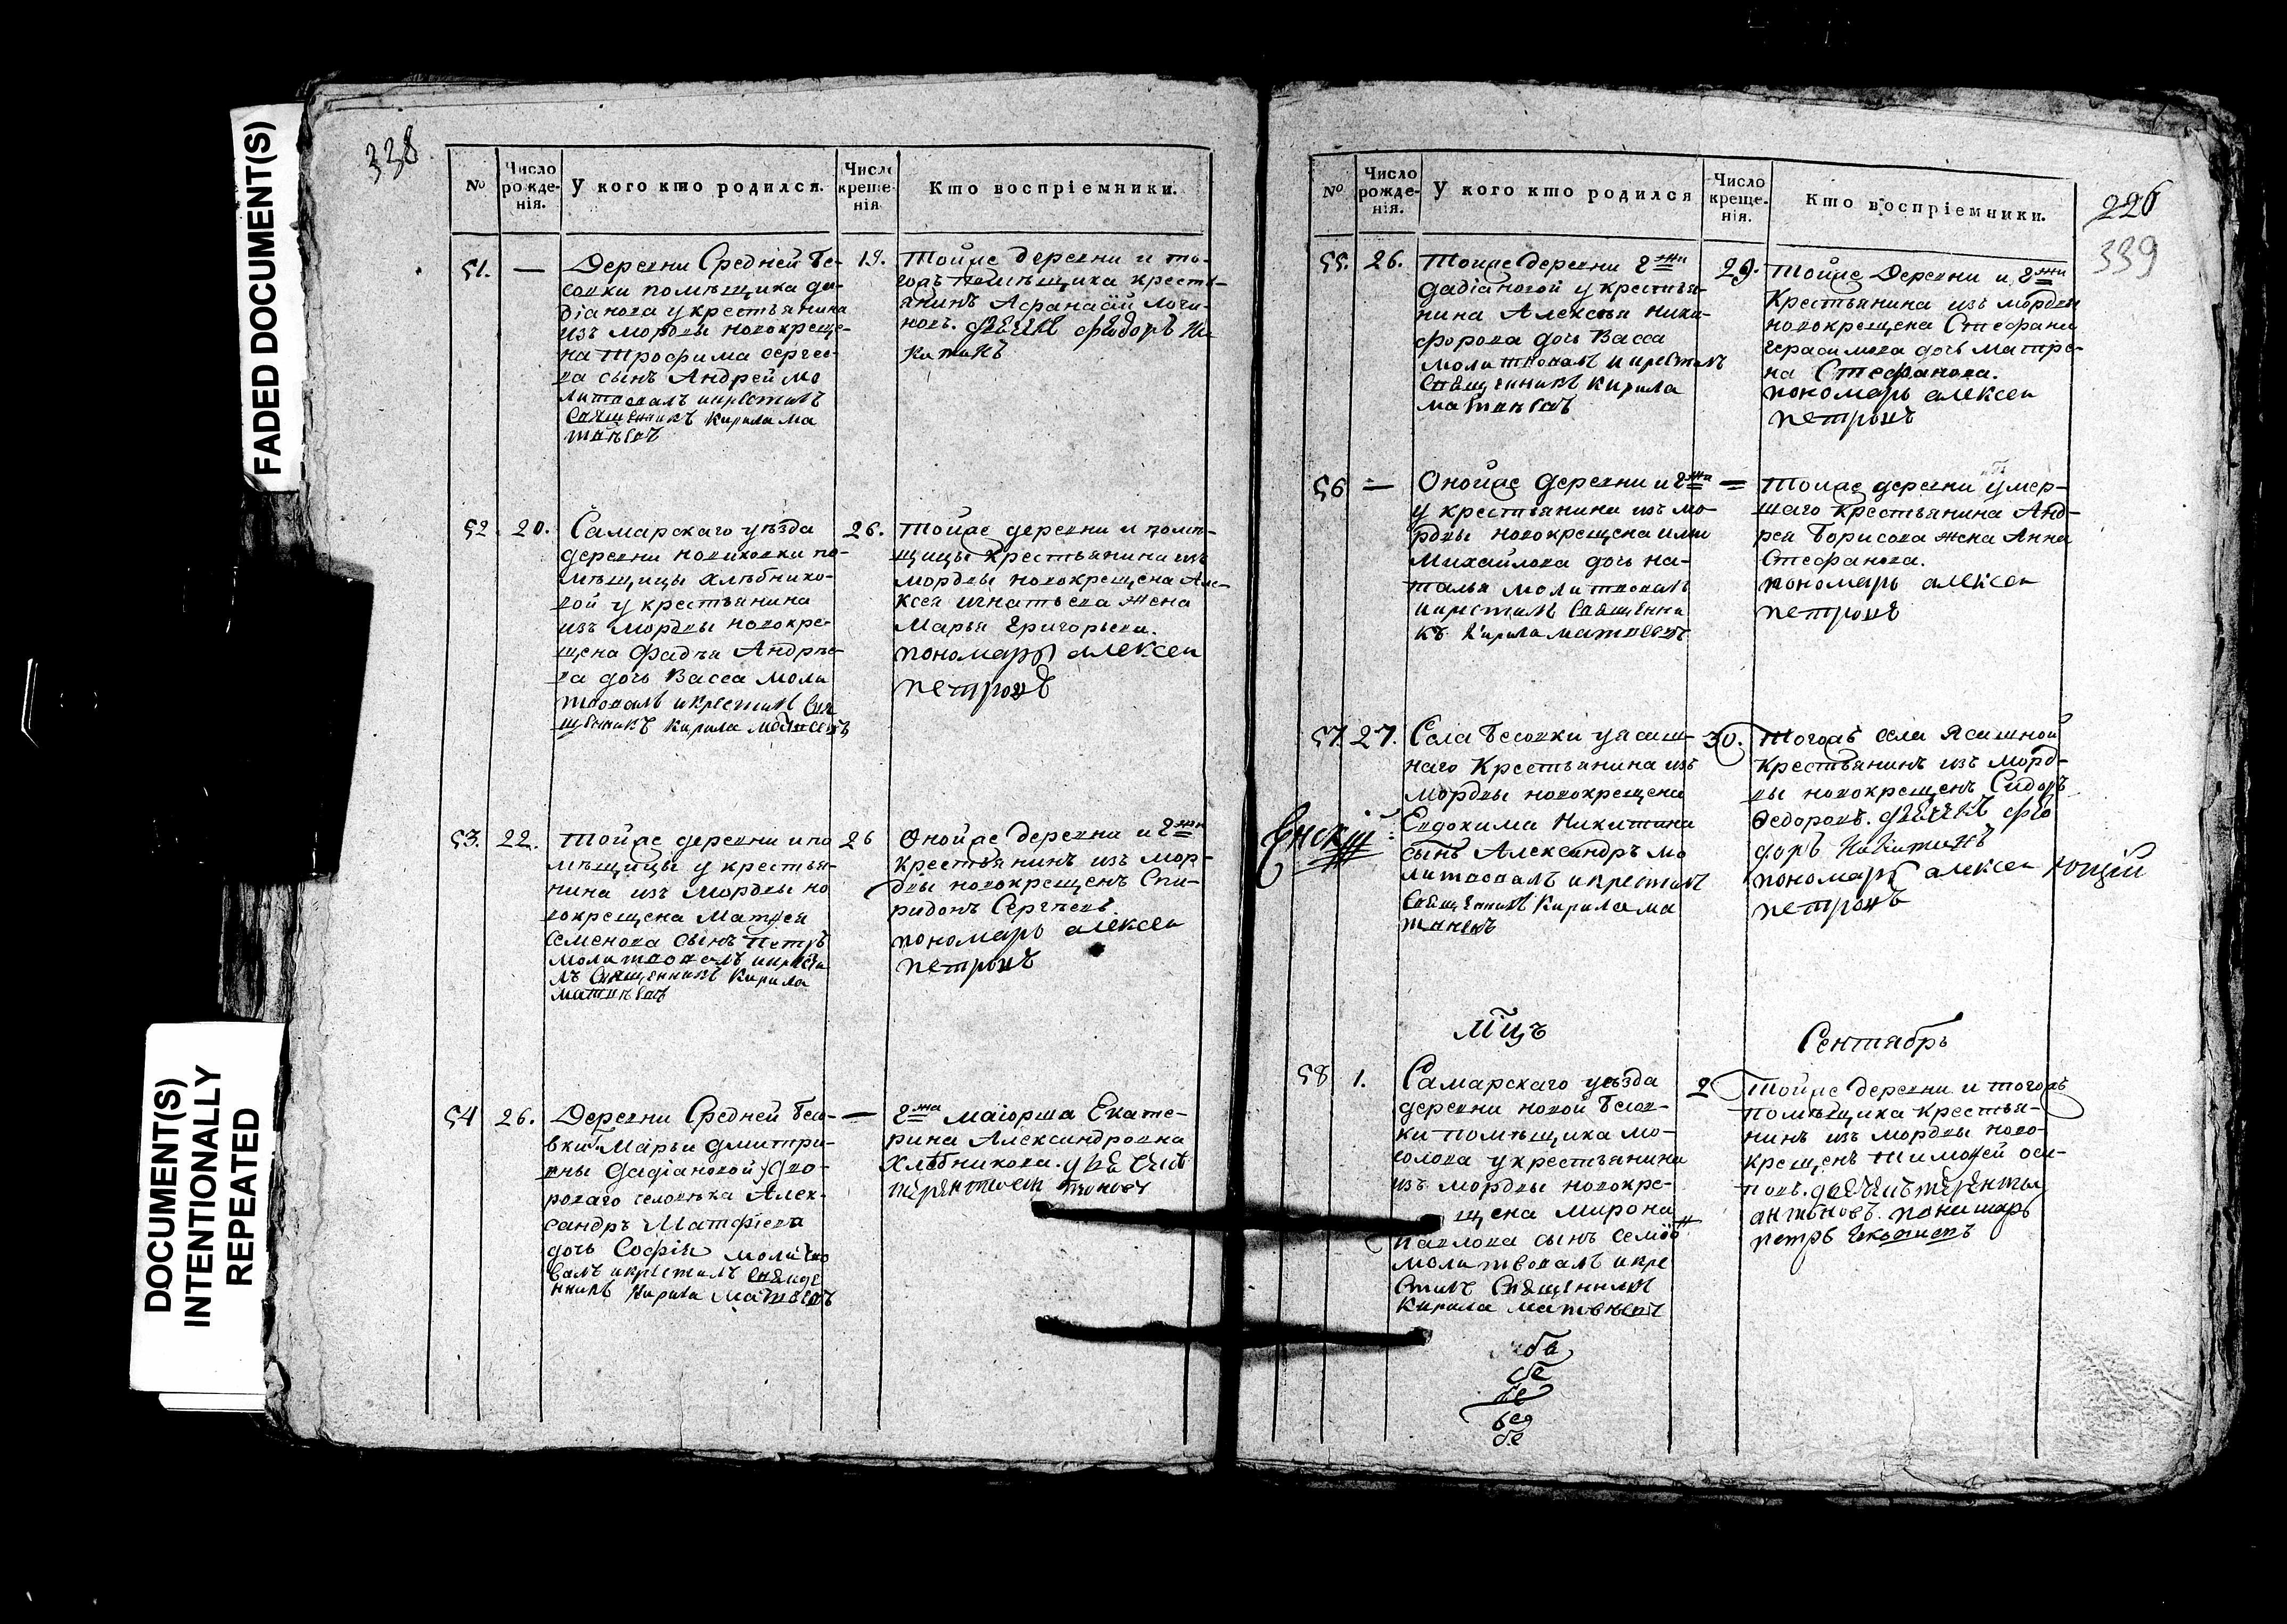 FADED DOCUMENT(S)
DOCUMENT(S)
INTENTIONALLY
REPEATED
338
№
Число
рожде-
нія.
У кого кто родился.
Число
креще-
нія
Кто воспріемники.
51.
—
Деревни Средней Бе-
совки помѣщика да-
діанова у крестьянина
изъ мордвы новокреще-
на Трофима сергее-
ва сынъ Андрей мо
литвовалъ икрестилъ
Священникъ Кирила ма
твѣевъ
19.
Тойже деревни и то-
гожъ помѣщика кресть-
янинъ Афанасій логи-
новъ. Фѣодоръ Ни
китинъ
52.
20.
Самарскаго уѣзда
деревни новиковки по-
мѣщицы хлѣбнико-
вой у крестьянина
изъ мордвы новокре-
щена Фадѣя Андрѣе-
ва дочь Васса моли
твовалъ икрестилъ Свя
щенникъ Кирила матвеевъ
26.
Тойже деревни и помѣ-
щицы крестьянина изъ
мордвы новокрещена Але-
ксея игнатьева жена
Марья Григорьева.
пономарь алексеи
петровъ
53.
22.
Тойже деревни и по
мѣщицы у крестья-
нина изъ мордвы но
вокрещена Матфея
семенова сынъ Петръ
молитвовалъ икрести
лъ Священникъ Кирила
матвѣевъ
26
Онойже деревни и Гжи
крестьянинъ изъ мор-
двы новокрещенъ Спи-
ридонъ Сергѣевъ.
пономарь алексеи
петровъ
54
26.
Деревни Средней Бесо-
вки Гжи Марьи дмитри-
вны дадіановой у дво-
роваго человѣка Алек-
сандръ Матфіева
дочь Софія молитво
валъ икрестилъ Священ
никъ Кирила Матвеевъ
—
Гжа маіорша Екате-
рина Александровна
Хлѣбникова.
№
Число
рожде-
нія.
У кого кто родился
Число
креще-
нія.
Кто воспріемники.
226
339
55.
26.
Тойже деревни Гжи
дадіановой у крестья-
нина Алексѣя Ники-
форова дочь Васса
молитвовалъ икрестилъ
Священникъ Кирила
матвѣевъ
29.
Тойже Деревни и Гжи
крестьянина изъ мордвы
новокрещена Стефана
герасимова дочь Матре-
на Стефанова.
пономарь алексеи
петровъ
56
—
Онойже деревни и Гжи
у крестьянина изъ мо-
рдвы новокрещена ильи
Михайлова дочь На-
талья молитвовалъ
икрестилъ Священни
къ Кирила матвеевъ
—
Тойже деревни умер-
шаго крестьянина Анд-
рея Борисова жена Анна
Стефанова.
пономарь алексеи
петровъ
57.
27.
Села Бесовки у ясаш-
наго Крестьянина изъ
мордвы новокрещена
Евдокима Никитина
сынъ Александръ мо
литвовалъ икрестилъ
Священникъ Кирила ма
твѣевъ
30.
Тогожъ села Ясашной
крестьянинъ изъ морд-
вы новокрещенъ Сидоръ
Ѳедоровъ. Фео
доръ Никитинъ
пономарь алексеи
петровъ
мцъ
Сентябрь
58
1.
Самарскаго уѣзда
деревни новой Бесов-
ки помѣщика мо-
солова у крестьянина
изъ мордвы новокре-
щена мирона
Павлова сынъ Семіонъ
молитвовалъ икре
стилъ Священникъ
Кирила матвѣевъ
2
Тойже деревни и тогожъ
помѣщика крестья-
нинъ изъ мордвы ново-
крещенъ Тимофей оси-
повъ. дьячекъ терентьи
антоновъ. пономарь
петръ